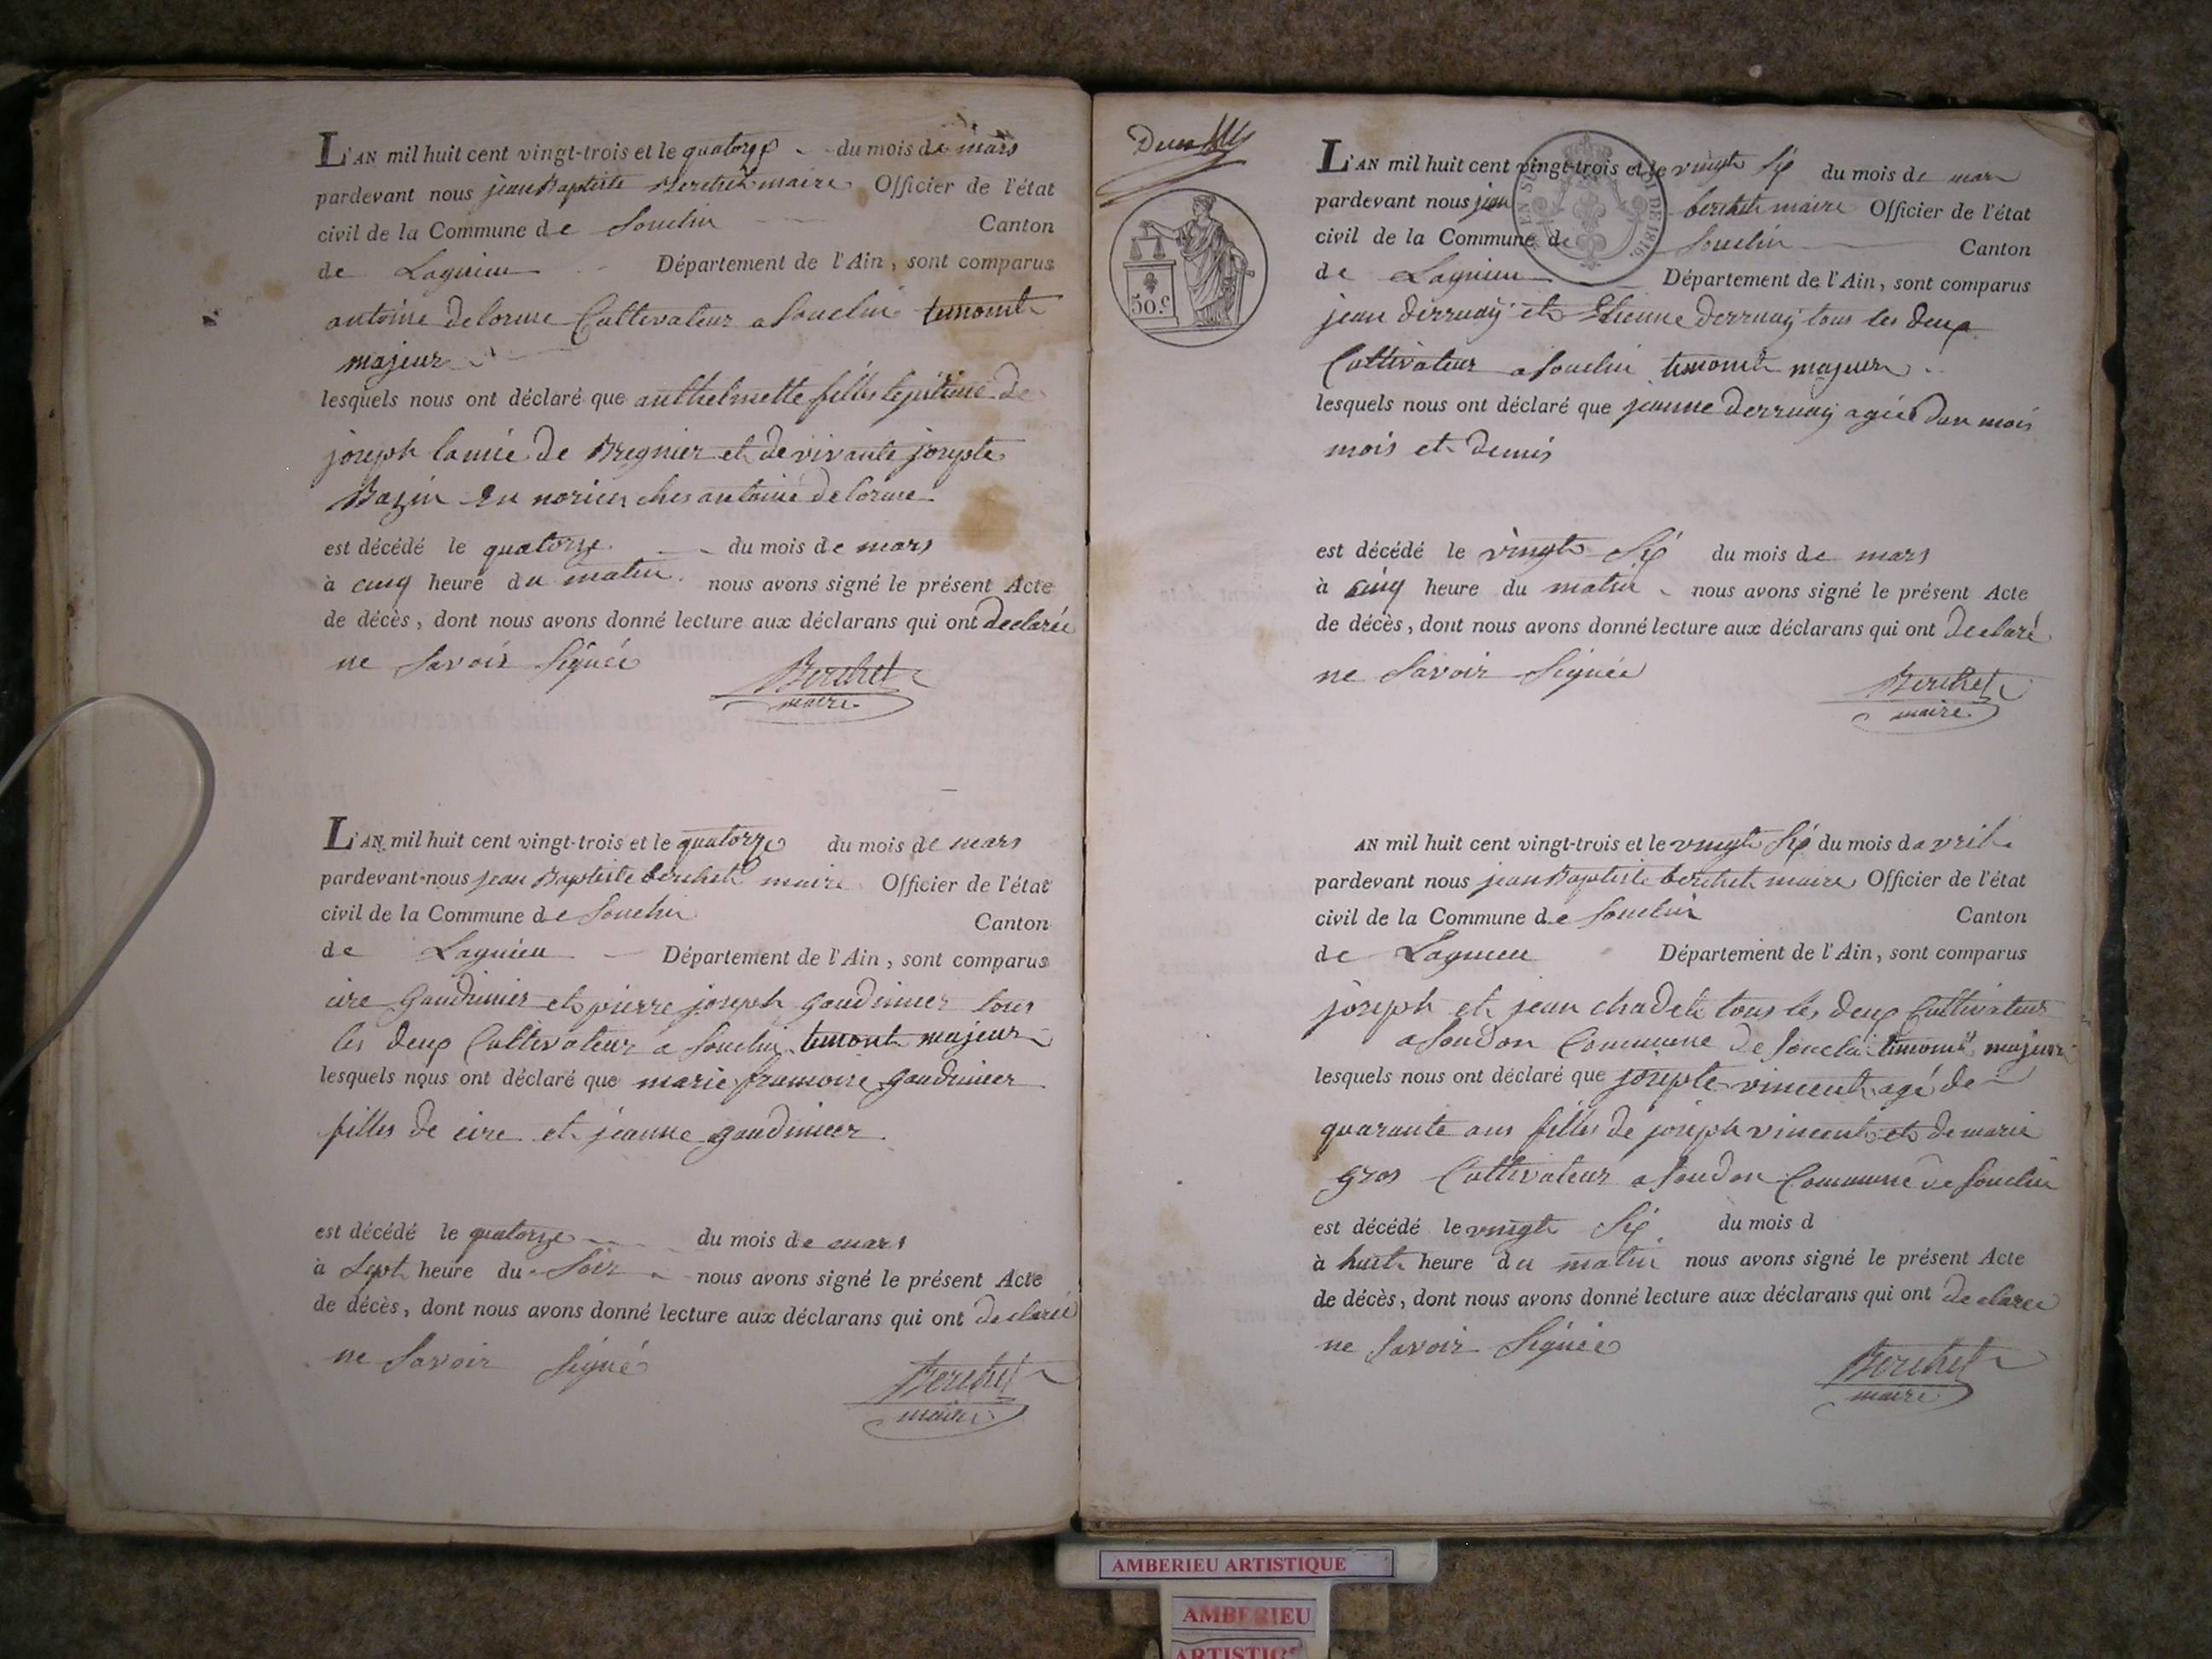 L'AN mil huit cent vingt-trois et le quatorze du mois de mars
pardevant nous jean Baptiste Berthet maire Officier de l'état
civil de la Commune de Souclin Canton
de Lagnieu Département de l'Ain, sont comparus
antoine delorme Cultivateur a Souclin temoint
majeur
lesquels nous ont déclaré que anthelmette filles lejitime de
joseph lamié de Bregnier et de vivante josepte
Bazin en norien ches antoine delorme
est décédé le quatorze du mois de mars
à cinq heure du matin nous avons signé le présent Acte
de décès, dont nous avons donné lecture aux déclarans qui ont declarée
ne Savoir Signée
Berthet
maire
L'AN mil huit cent vingt-trois et le quatorze du mois de mars
pardevant-nous jean Baptiste berthet maire Officier de l'état
civil de la Commune de Souclin Canton
de Lagnieu Département de l'Ain, sont comparus
cire gaudinier et pierre joseph gaudinier tous
les deux Cultivateur a Souclin temont majeur
lesquels nous ont déclaré que marie gaudinier
filles de cire et jeanne gaudinier
est décédé le quatorze du mois de mars
à Sept heure du Soir nous avons signé le présent Acte
de décès, dont nous avons donné lecture aux déclarans qui ont declarée
ne Savoir Signé
Berthet
maire
50.c
DE 1816.
L'AN mil huit cent vingt-trois et le vingt Six du mois de mars
pardevant nous jean berthet maire Officier de l'état
civil de la Commune de Souclin Canton
de Lagnieu Département de l'Ain, sont comparus
jean derruaz et Etienne derruaz tous les deux
Cultivateur a Souclin temoint majeur
lesquels nous ont déclaré que jeanne derruaz agée dun mois
mois et demis
est décédé le vingt Six du mois de mars
à cinq heure du matin nous avons signé le présent Acte
de décès, dont nous avons donné lecture aux déclarans qui ont declaré
ne Savoir Signée
Berthet
maire
AN mil huit cent vingt-trois et le vingt Six du mois davril
pardevant nous jean Baptiste berthet maire Officier de l'état
civil de la Commune de Souclin Canton
de Lagnieu Département de l'Ain, sont comparus
joseph et jean chadet tous les deux Cultivateur
a Soudon Commune de Souclin temoint majeur
lesquels nous ont déclaré que josepte vincent agé de
quarante ans filles de joseph vincent et de marie
gros Cultivateur a Soudon Commune de Souclin
est décédé le vingt Six du mois d
à huit heure du matin nous avons signé le présent Acte
de décès, dont nous avons donné lecture aux déclarans qui ont declarée
ne Savoir Signée
Berthet
maire
AMBERIEU ARTISTIQUE
AMBERIEU